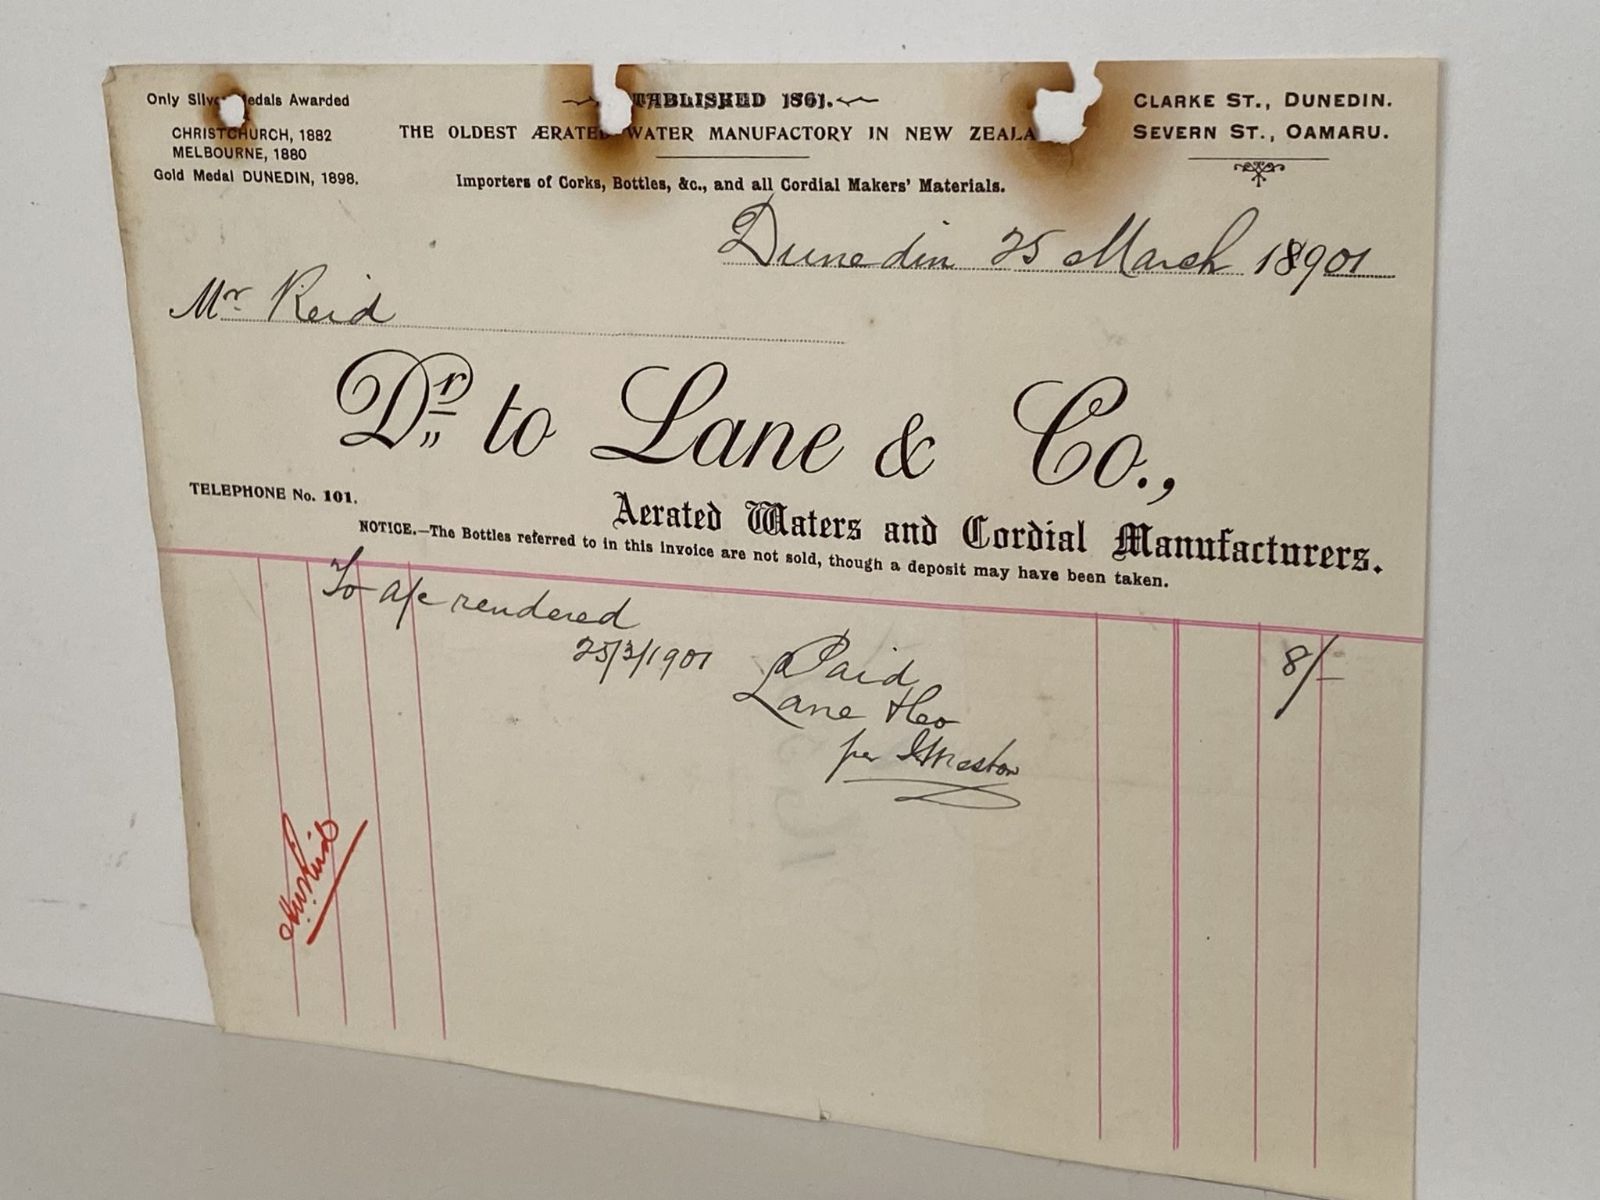 Only Silver Medals Awarded
CHRISTCHURCH, 1882
MELBOURNE, 1880
Gold Medal DUNEDIN, 1898.
ESTABLISHED 1861.
THE OLDEST ÆRATED WATER MANUFACTORY IN NEW ZEALA
Importers of Corks, Bottles, &c., and all Cordial Makers' Materials.
CLARKE ST., DUNEDIN.
SEVERN ST., OAMARU.
Dunedin 25 March 18901
Mr Reid
Dr. to Lane & Co.,
TELEPHONE No. 101.
Aerated Waters and Cordial Manufacturers.
NOTICE.—The Bottles referred to in this invoice are not sold, though a deposit may have been taken.
To a/c rendered 8/-
25/3/1901 Paid
Lane & Co
per
Reid